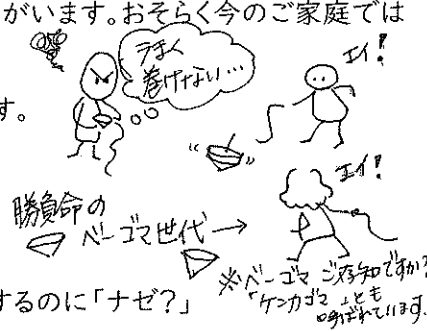 がいます。おそらく今のご家庭では
うまく
巻けない…
エイ!
す。
エイ!
勝負命の
ベーゴマ世代→
※ベーゴマ ご存知ですか?
「ケンカゴマ」とも
呼ばれています。
するのに「ナゼ?」